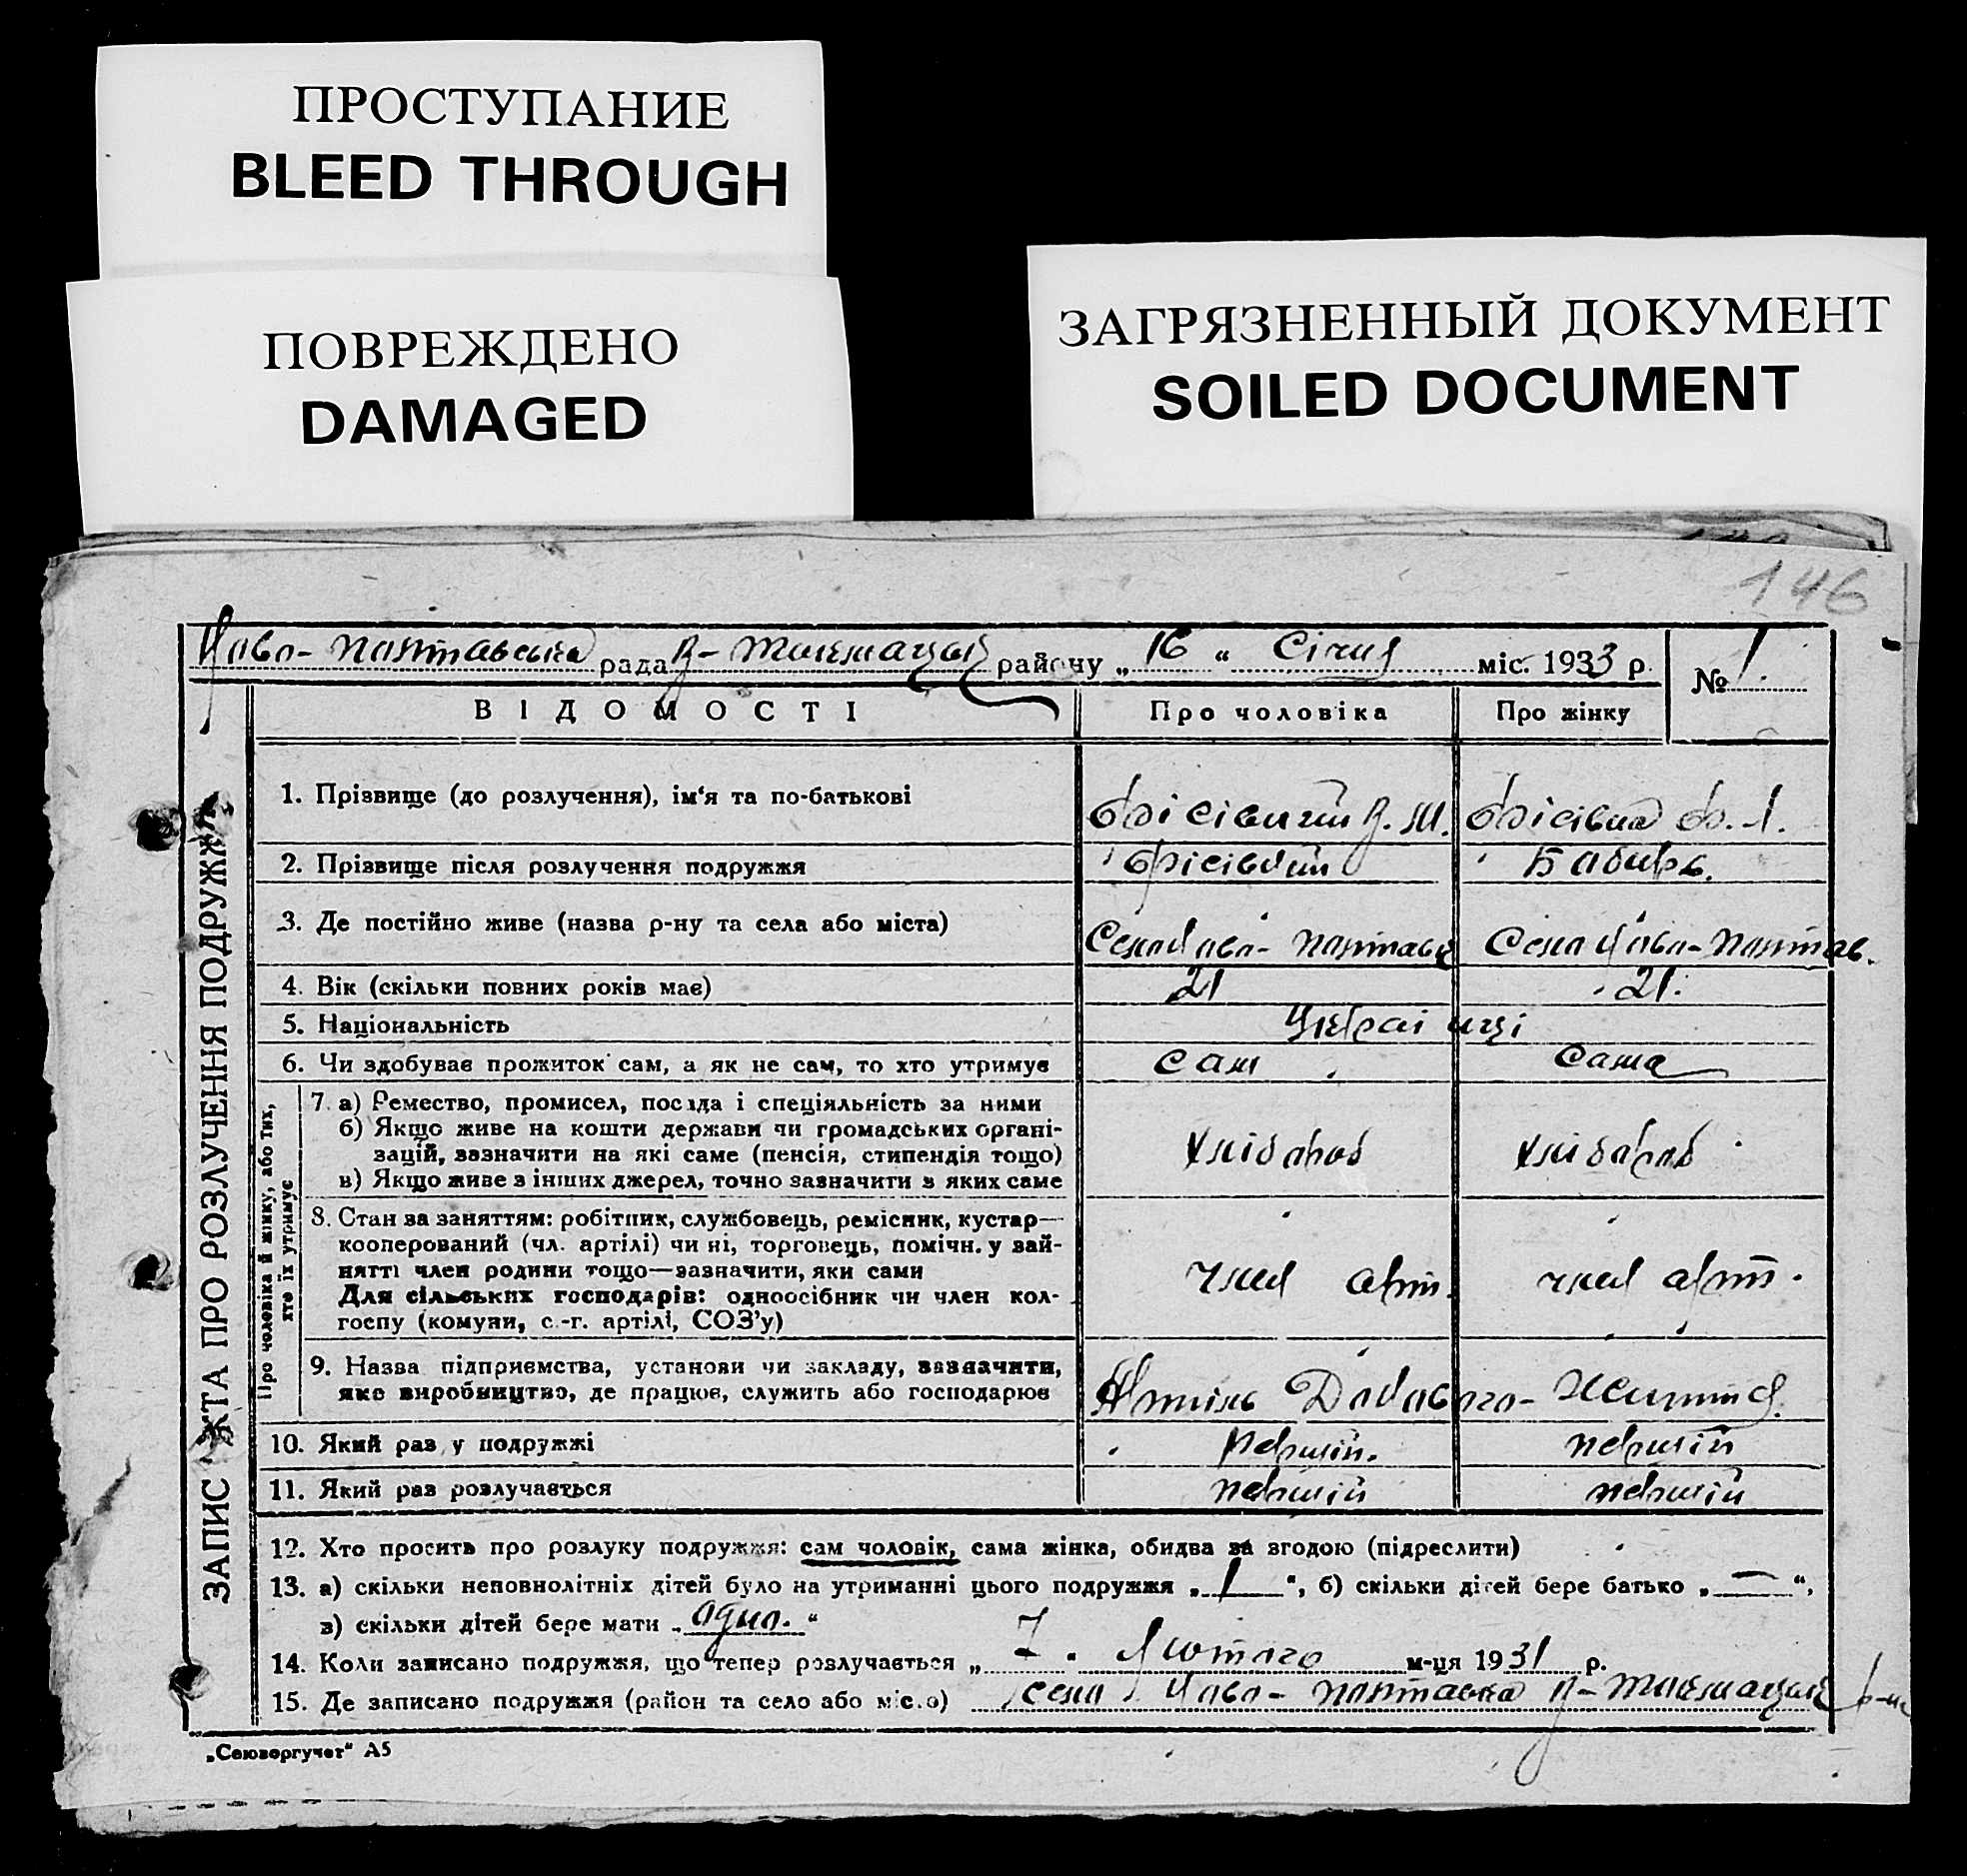 ПРОСТУПАНИЕ
BLEED THROUGH
ПОВРЕЖДЕНО
DAMAGED
ЗАГРЯЗНЕННЫЙ ДОКУМЕНТ
SOILED DOCUMENT
146
Ново-Полтавська рада В-Токмацьк району „ 16 “ Січня міс. 1933 р. № 1
ВІДОМОСТІ Про чоловіка Про жінку
ЗАПИС АКТА ПРО РОЗЛУЧЕННЯ ПОДРУЖЖЯ
1. Прізвище (до розлучення), ім‘я та по-батькові
2. Прізвище після розлучення подружжя
3. Де постійно живе (назва р-ну та села або міста) Село Ново-Полтавц Село Ново-Полтав.
4. Вік (скільки повних років має) 21 21.
5. Національність Українці
6. Чи здобуває прожиток сам, а як не сам, то хто утримує сам сама
Про чоловіка й жінку, або тих, хто їх утримує
7. а) Ремество, промисел, посада і спеціяльність за ними
б) Якщо живе на кошти держави чи громадських органі-
зацій, зазначити на які саме (пенсія, стипендія тощо) хлібороб хлібороб
в) Якщо живе з інших джерел, точно зазначити з яких саме
8. Стан за заняттям: робітник, службовець, ремісник, кустар—
кооперований (чл. артілі) чи ні, торговець, помічн. у зай-
нятті член родини тощо—зазначити, яки сами член арт. член арт.
Для сільських господарів: одноосібник чи член кол-
госпу (комуни, с.-г. артілі, СОЗ’у)
9. Назва підприємства, установи чи закладу, зазначити,
яке виробництво, де працює, служить або господарює
10. Який раз у подружжі перший. перший
11. Який раз розлучається перший перший
12. Хто просить про розлуку подружжя: сам чоловік, сама жінка, обидва за згодою (підреслити)
13. а) скільки неповнолітніх дітей було на утриманні цього подружжя „ 1 “, б) скільки дітей бере батько „ — “,
в) скільки дітей бере мати „ одно. “
14. Коли записано подружжя, що тепер розлучається „ 7 “ Лютого м-ця 1931 р.
15. Де записано подружжя (район та село або місто) село Ново-Полтавка В-Токмацьк р-н
„Союзоргучет“ А5